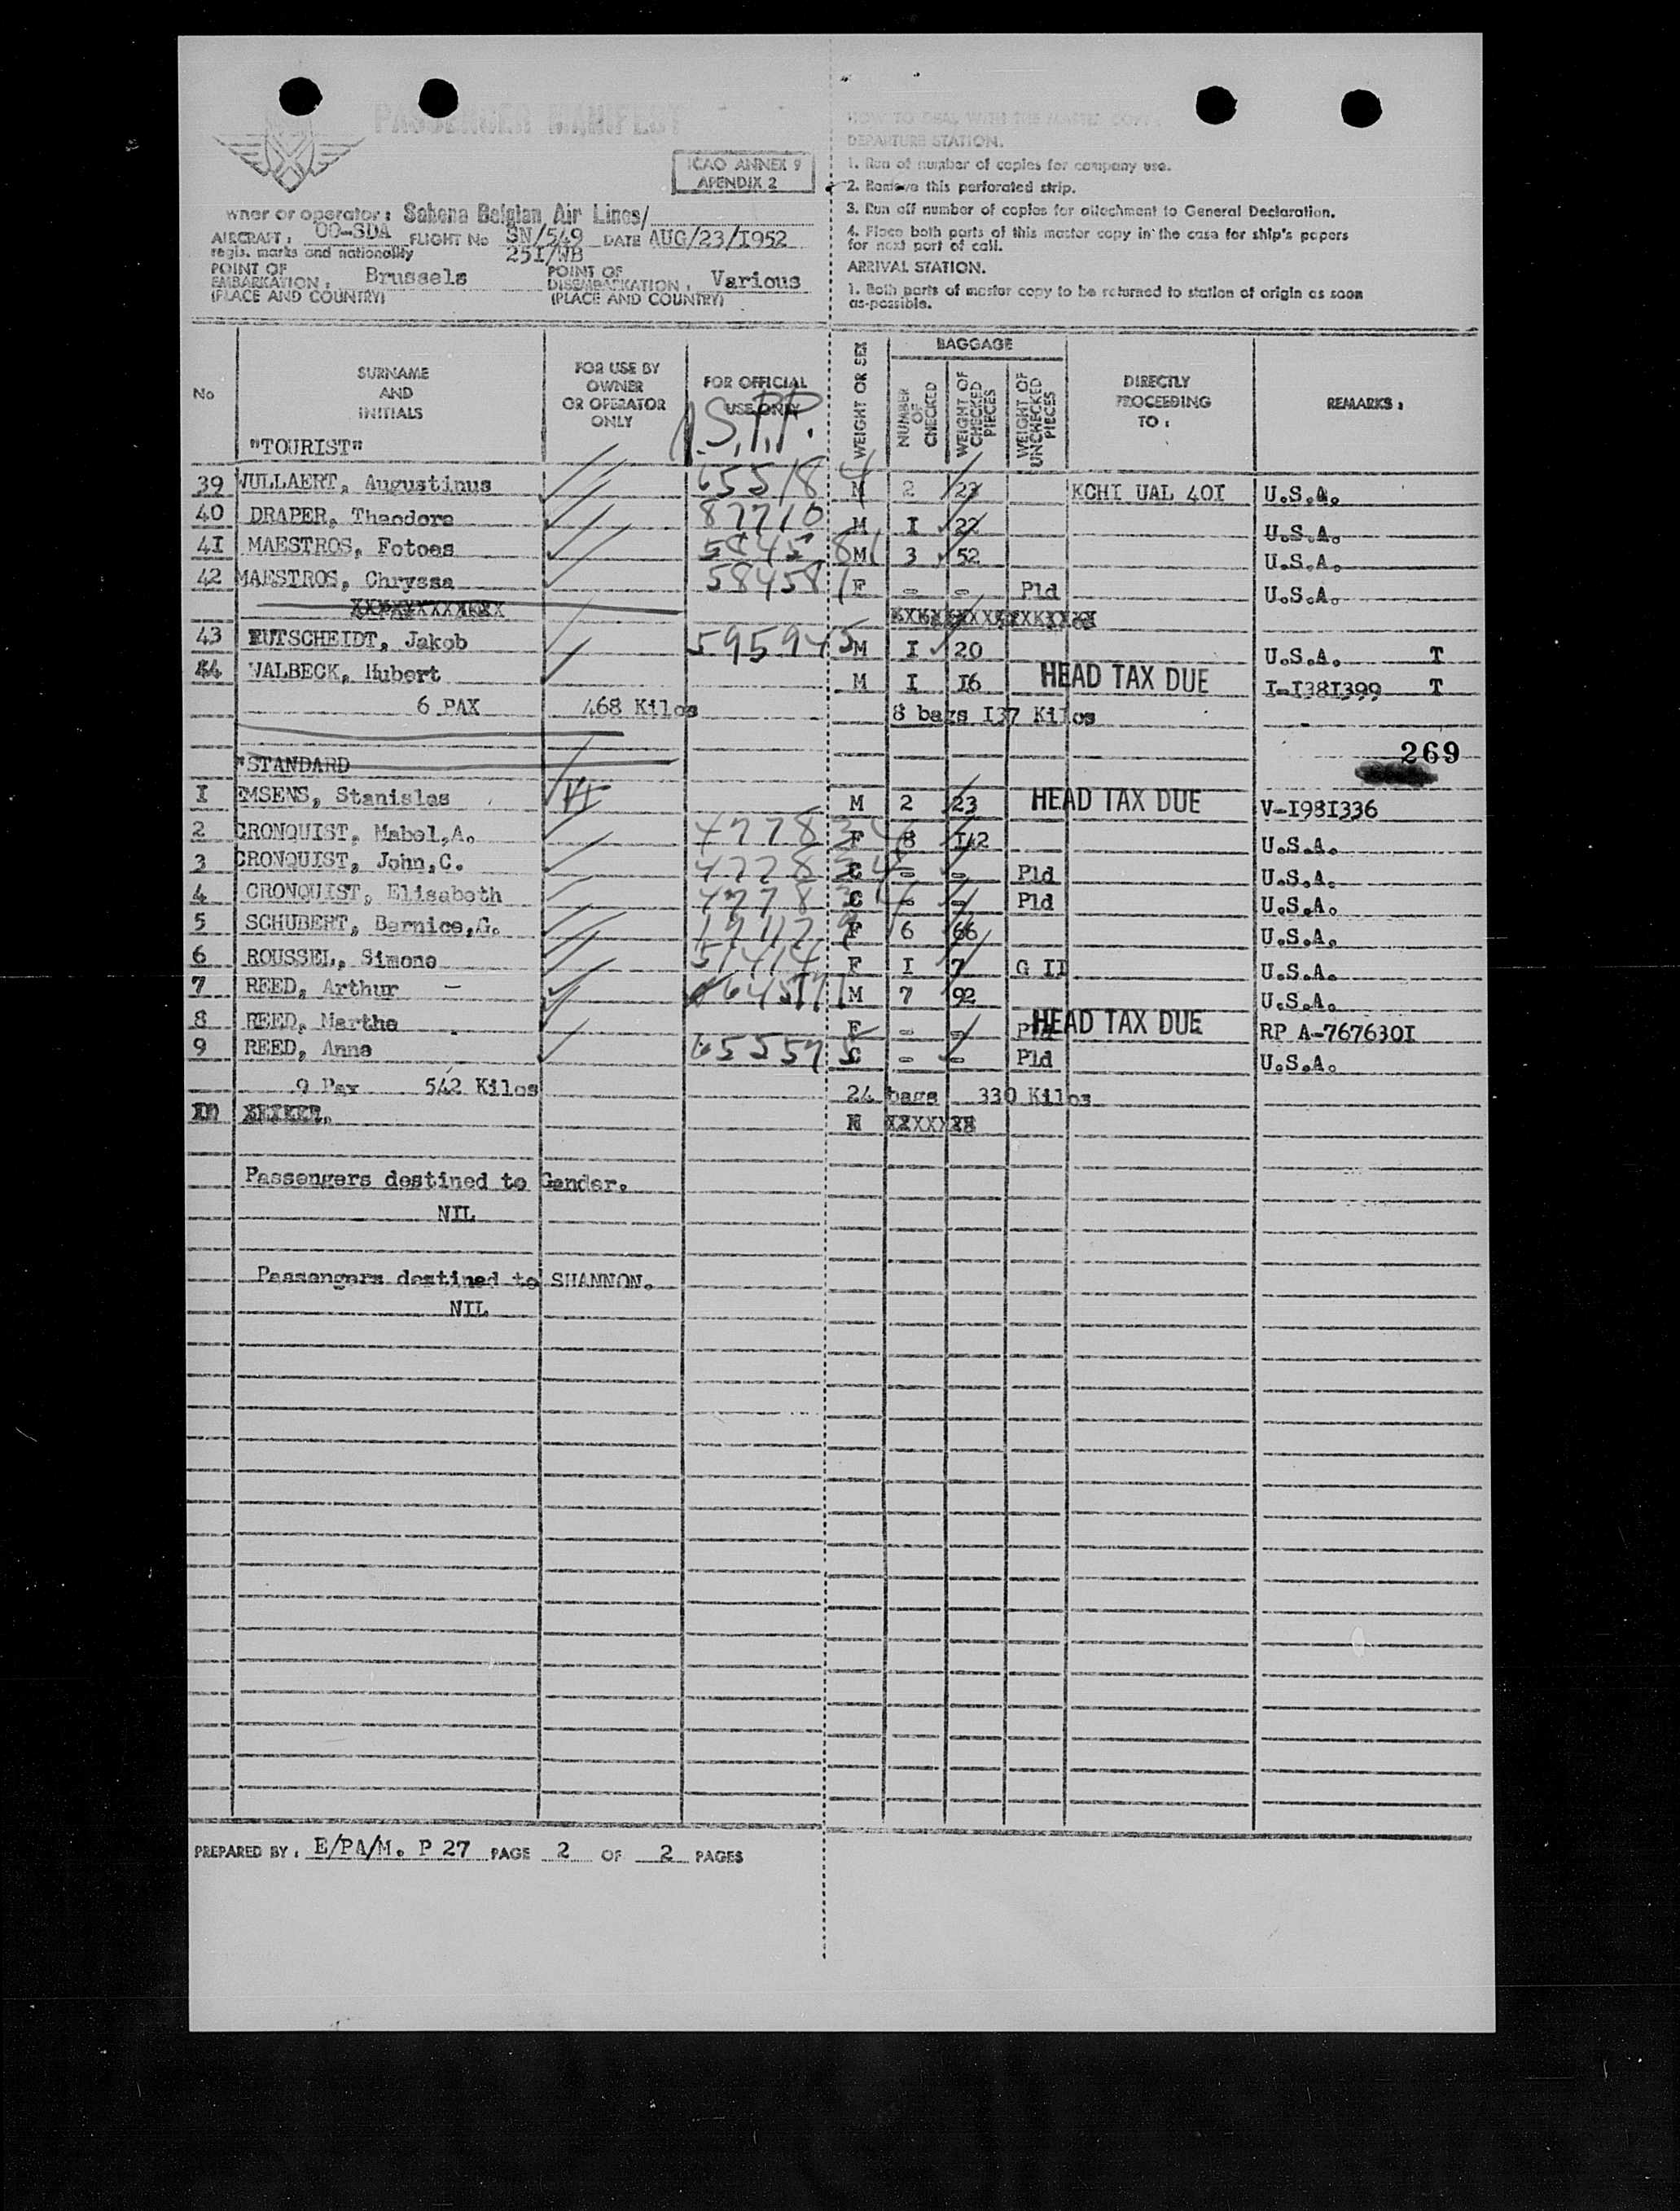 PASSENGER MANIFEST
ICAO ANNEX 9
APENDIX 2
wner or operator : Sabena Belgian Air Lines/
AIRCRAFT : OO-SDA FLIGHT No SN/549 DATE AUG/23/I952
regis. marks and nationality 25I/WB
POINT OF EMBARKATION : Brussels POINT OF DISEMBARKATION : Various
(PLACE AND COUNTRY) (PLACE AND COUNTRY)
HOW TO DEAL WITH THE MASTER COPY.
DEPARTURE STATION.
1. Run of number of copies for company use.
2. Remove this perforated strip.
3. Run off number of copies for attachment to General Declaration.
4. Place both parts of this master copy in the case for ship's papers
for next port of call.
ARRIVAL STATION.
1. Both parts of master copy to be returned to station of origin as soon
as-possible.
No SURNAME AND INITIALS FOR USE BY OWNER OR OPERATOR ONLY FOR OFFICIAL USE ONLY WEIGHT OR SEX BAGGAGE NUMBER OF CHECKED WEIGHT OF CHECKED PIECES WEIGHT OF UNCHECKED PIECES DIRECTLY PROCEEDING TO : REMARKS :
"TOURIST"
39 WULLAERT, Augustinus 655184 M 2 23 KCHI UAL 40I U.S.A.
40 DRAPER, Theodore 87710 M I 22 U.S.A.
4I MAESTROS, Fotoes 584581 M 3 52 U.S.A.
42 MAESTROS, Chryssa 584581 F - - Pld U.S.A.
43 EUTSCHEIDT, Jakob 595945 M I 20 U.S.A. T
44 WALBECK, Hubert M I I6 HEAD TAX DUE I-I38I399 T
6 PAX 468 Kilos 8 bags I37 Kilos
269
"STANDARD
I EMSENS, Stanislas M 2 23 HEAD TAX DUE V-I98I336
2 CRONQUIST, Mabel,A. 477834 F 8 I42 U.S.A.
3 CRONQUIST, John,C. 477834 C - - Pld U.S.A.
4 CRONQUIST, Elisabeth 477834 C - - Pld U.S.A.
5 SCHUBERT, Bernice,G. F 6 66 U.S.A.
6 ROUSSEL, Simone 51414 F I 7 G II U.S.A.
7 REED, Arthur - M 7 92 U.S.A.
8 REED, Marthe F - - Pld HEAD TAX DUE RP A-767630I
9 REED, Anne 655595 C - - Pld U.S.A.
9 Pax 542 Kilos 24 bags 330 Kilos
Passengers destined to Gander.
NIL
Passengers destined to SHANNON.
NIL
PREPARED BY : E/PA/M. P 27 PAGE 2 OF 2 PAGES